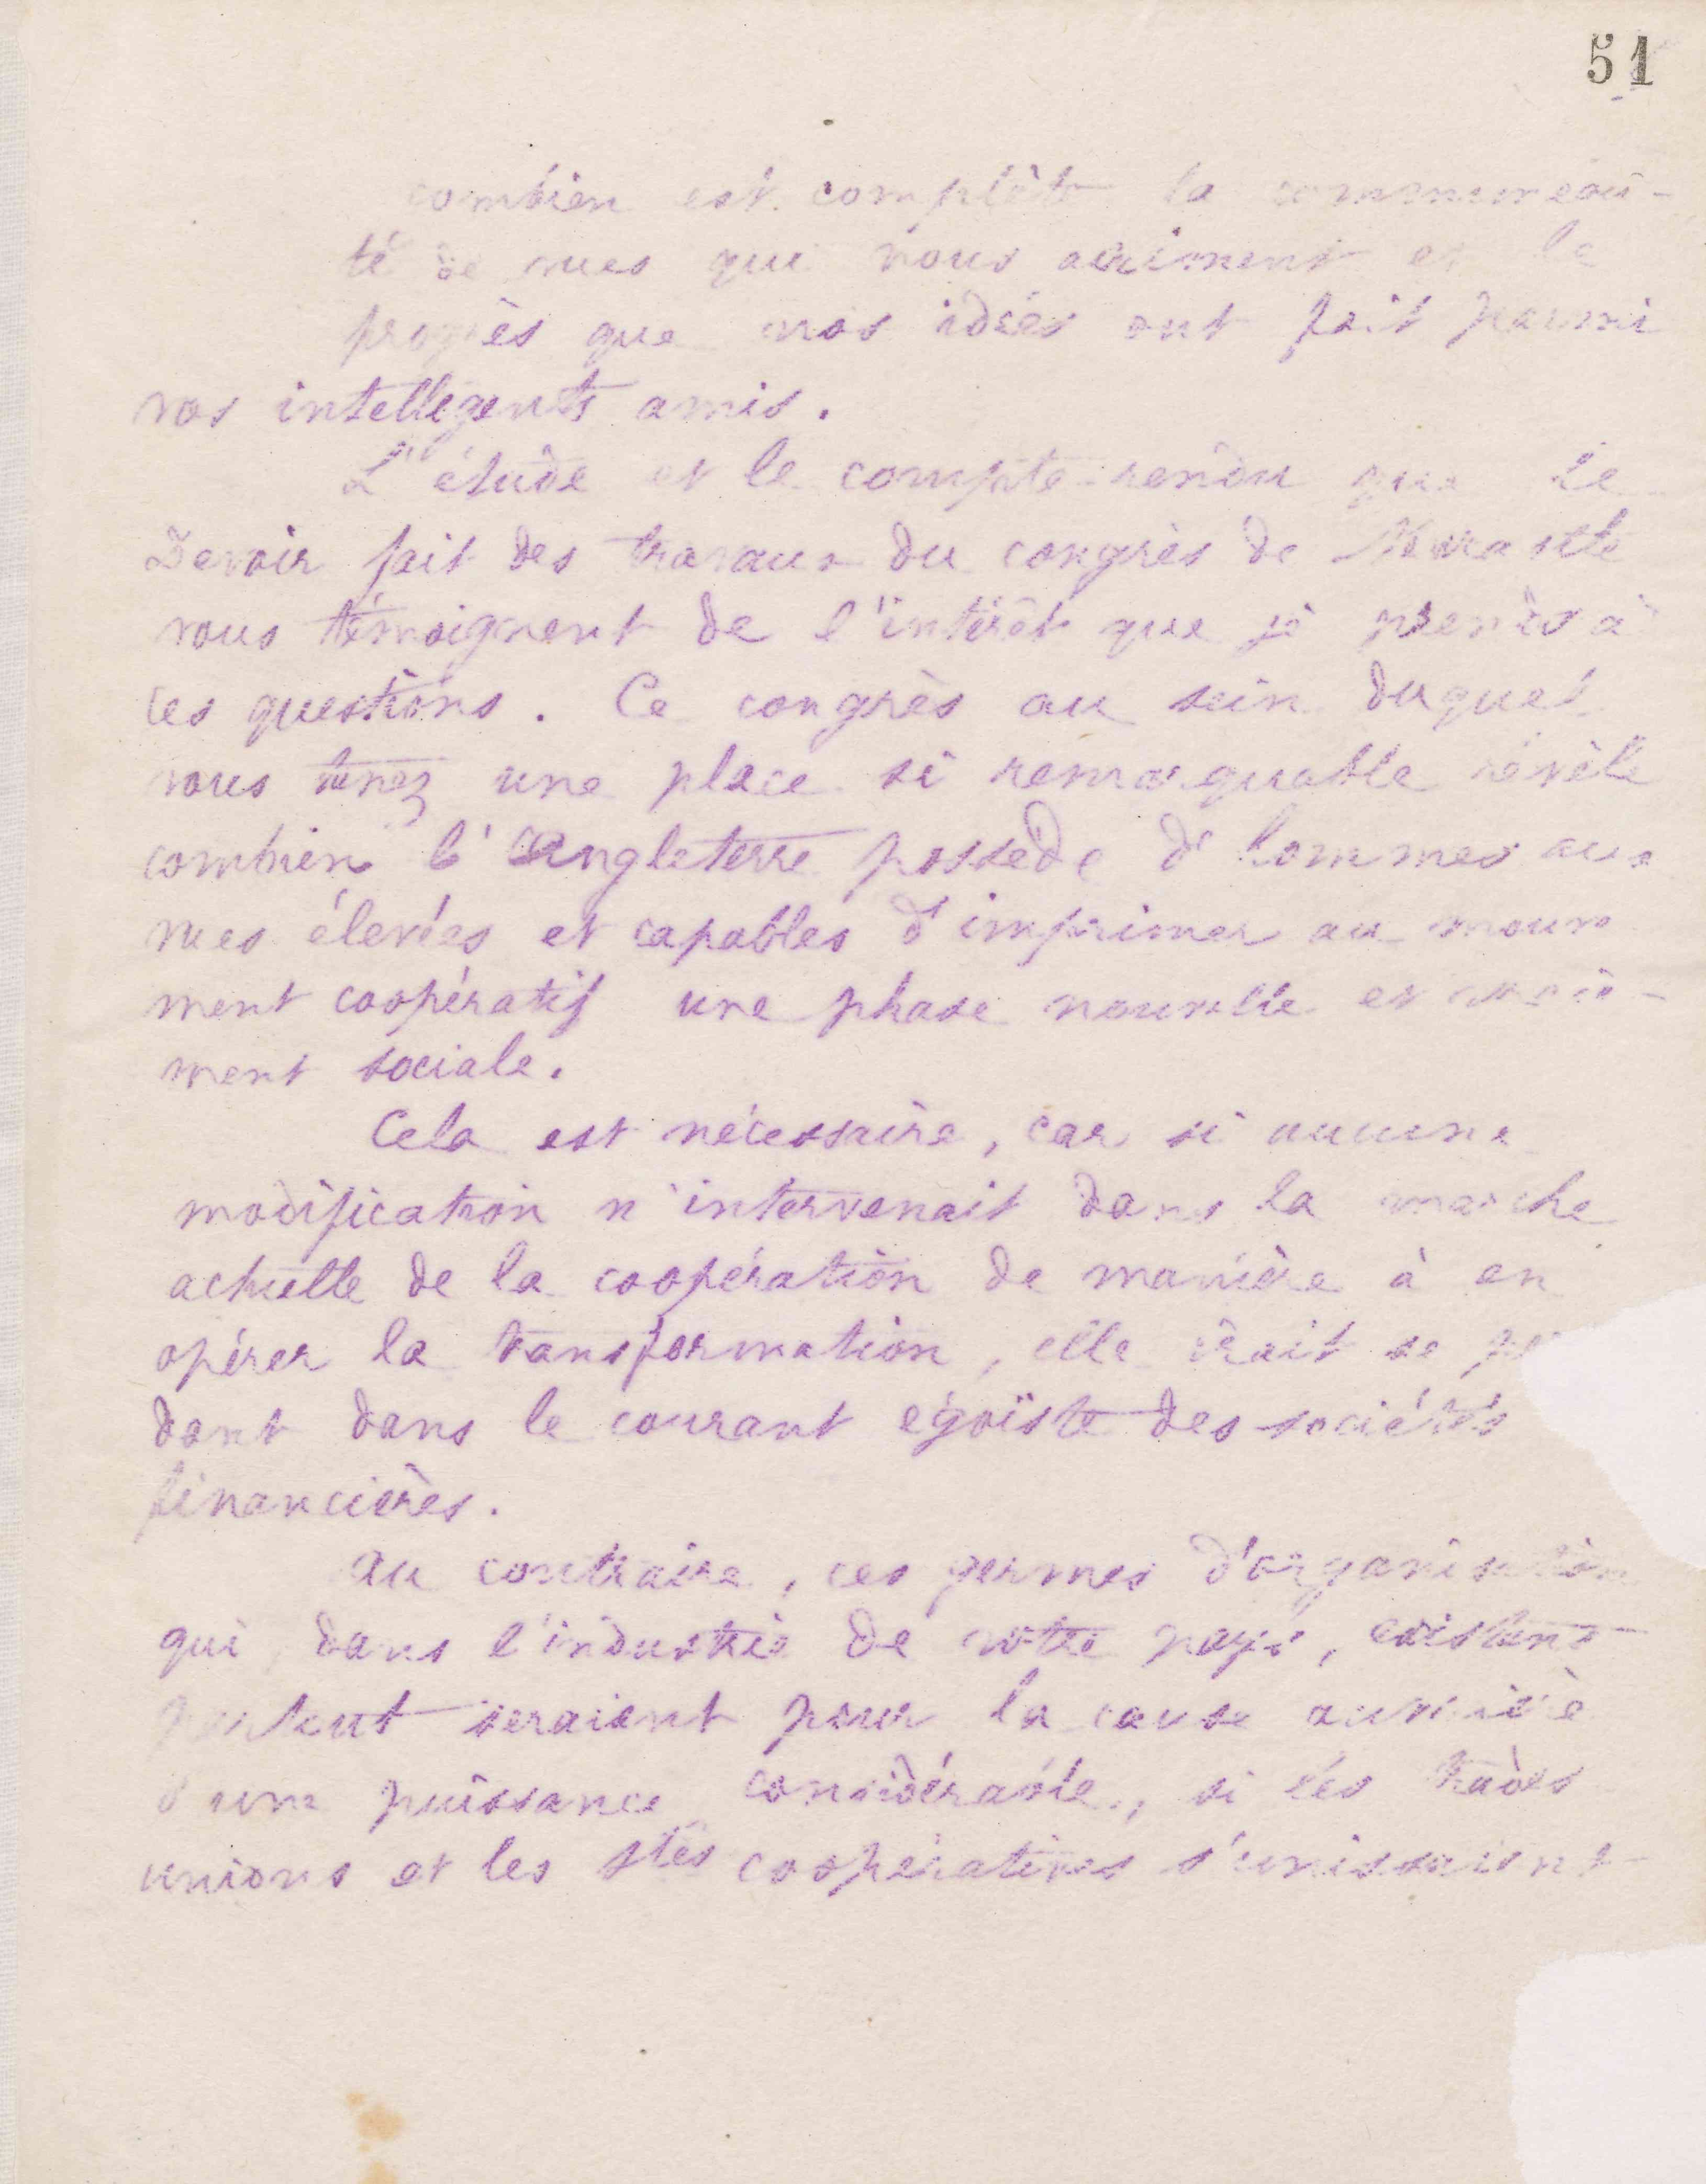 51
combien est complète la communeau-
té de vues qui nous animent et le
progrès que nos idées ont fait parmi
vos intelligents amis.
L'étude et le compte-rendu que Le
Devoir fait des travaux du congrès de Newcastle
vous témoignent de l'intérêt que je prends à
ces questions. Ce congrès au sein duquel
vous tenez une place si remarquable révèle
combien l'Angleterre possède d'hommes aux
vues élevées et capables d'imprimer au mouve
ment coopératif une phase nouvelle et vrai-
ment sociale.
Cela est nécessaire, car si aucune
modification n'intervenait dans la marche
actuelle de la coopération de manière à en
opérer la transformation, elle irait se
dant dans le courant égoïste des sociétés
financières.
Au contraire, ces germes d'organisation
qui, dans l'industrie de votre pays, existent
partout seraient pour la cause ouvrière
d'une puissance considérable, si les trades
unions et les stés coopératives s'unissaient